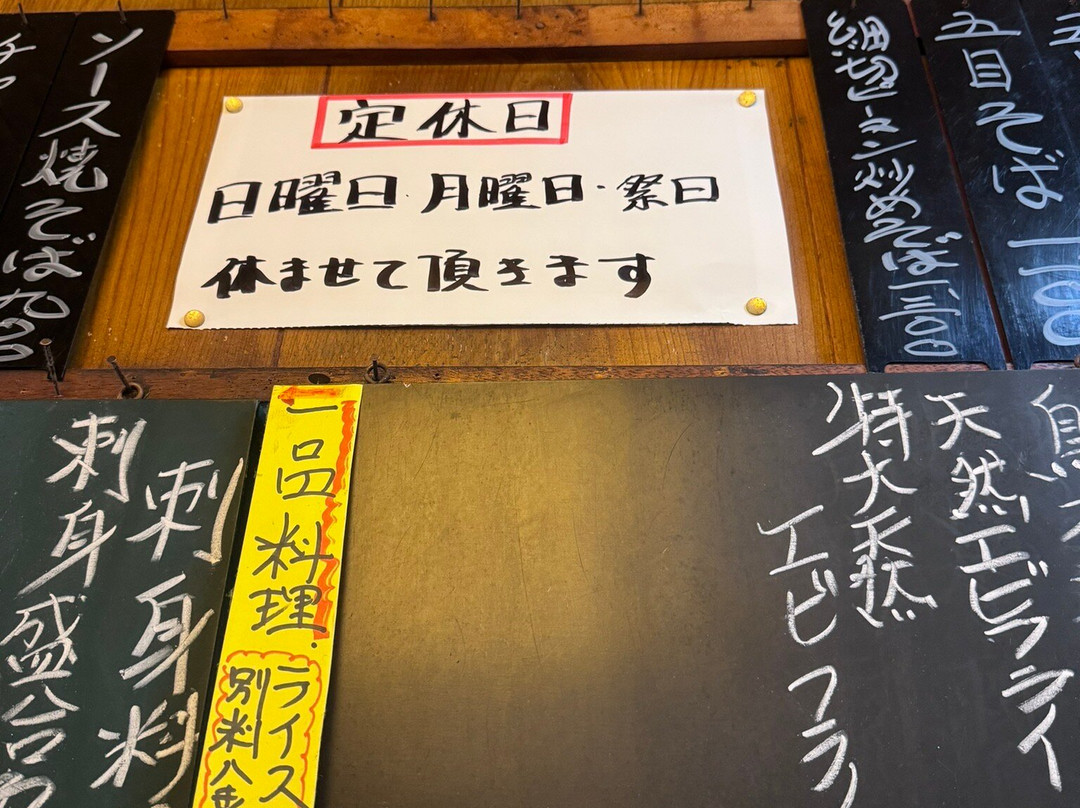 定休日
日曜日・月曜日・祭日
休ませて頂きます
五目そば 一、一00
細切ピーメン炒めそば 一、三00
ソース焼そば 九00
天然エビフライ
特大天然
エビフライ
一品料理
ライス
別料
刺身料
刺身盛合